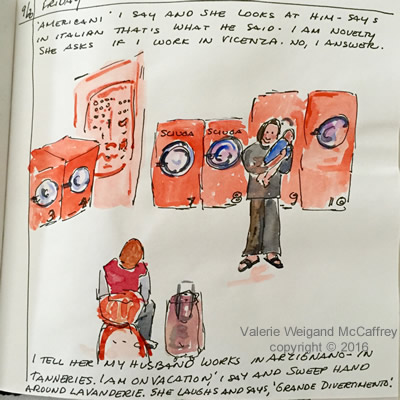 9/2 FRIDAY
'AMERICANI' I SAY AND SHE LOOKS AT HIM - SAYS
IN ITALIAN THAT'S WHAT HE SAID. I AM NOVELTY
SHE ASKS IF I WORK IN VICENZA. NO, I ANSWER.
SCIUGA SCIUGA
7 8 9 10
Valerie Weigand McCaffrey
copyright © 2016
I TELL HER MY HUSBAND WORKS IN ARZIGNANO - IN
TANNERIES. 'I AM ON VACATION,' I SAY AND SWEEP HAND
AROUND LAVANDERIE. SHE LAUGHS AND SAYS, 'GRANDE DIVERTIMENTO'.